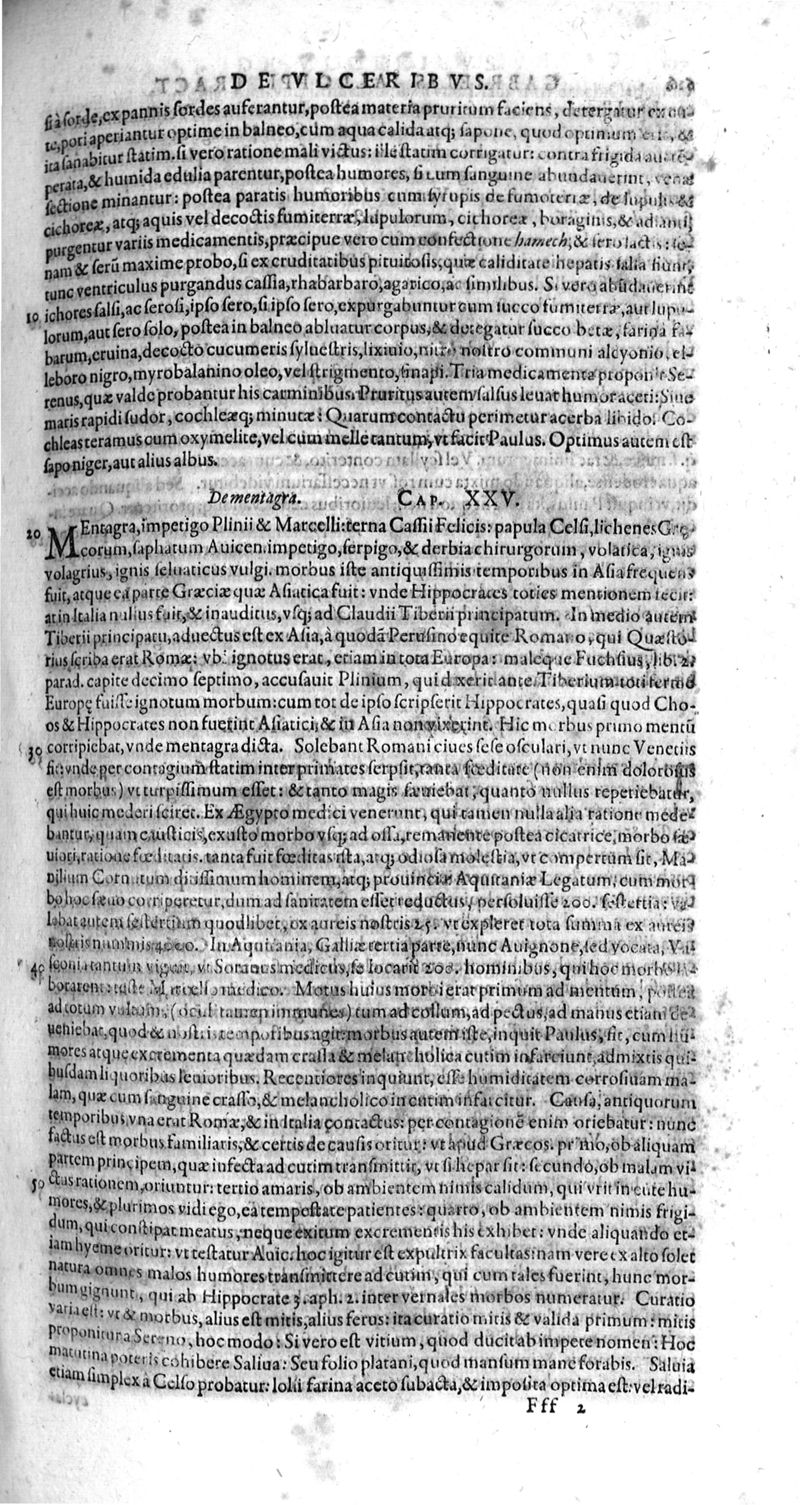 DE VLCERIBVS.
si à sorde, ex pannis sordes auferantur, postea materia pruritum faciens, detergatur
aperiantur optime in balneo, cum aqua calida atq; sapone, quod optimum
ita sanabitur statim. si vero ratione mali victus: ille statim corrigatur: contra frigida
perata, & humida edulia parentur, postea humores, si cum sanguine abundauerint, venæ
sectione minantur: postea paratis humoribus cum syrupis de fumoterræ, de lupulis &
cichoreæ, atq; aquis vel decoctis fumiterræ, lupulorum, cichoreæ, boraginis, & adianti
purgentur variis medicamentis, præcipue vero cum confectione hamech, & sero lactis: se-
nam & serū maxime probo, si ex cruditatibus pituitosis, quæ caliditate hepatis salsa fiunt,
tunc ventriculus purgandus cassia, rhabarbaro, agarico, ac similibus. Si vero abūdauerint
10 ichores salsi, ac serosi, ipso sero, si ipso sero, expurgabuntur cum succo fumiterræ, aut lupu-
lorum, aut sero solo, postea in balneo abluatur corpus, & detegatur succo betæ, farina fa-
barum, eruina, decocto cucumeris syluestris, lixiuio, nitro nostro communi alcyonio, el-
leboro nigro, myrobalanino oleo, vel strigmento, sinapi. Tria medicamenta proponit Se-
renus, quæ valde probantur his carminibus. Pruritus autem salsus leuat humor aceti: Siue
maris rapidi sudor, cochleæq; minutæ: Quarum contactu perimetur acerba libido. Co-
chleas teramus cum oxymelite, vel cum melle tantum, vt facit Paulus. Optimus autem est
sapo niger, aut alius albus.
De mentagra. CAP. XXV.
20 MEntagra, impetigo Plinii & Marcelli: terna Cassii Felicis: papula Celsi, lichenes Græ-
corum, saphatum Auicen. impetigo, serpigo, & derbia chirurgorum, volatica, ignis
volagrius, ignis seluaticus vulgi. morbus iste antiquissimis temporibus in Asia frequens
fuit, atque ea parte Græciæ quæ Asiatica fuit: vnde Hippocrates toties mentionem fecit:
at in Italia nullus fuit, & inauditus, vsq; ad Claudii Tiberii principatum. In medio autem
Tiberii principatu, aduectus est ex Asia, à quodā Perusino equite Romano, qui Quæsto-
rius scriba erat Romæ: vbi ignotus erat, etiam in tota Europa: maleque Fuchsius, lib. 2.
parad. capite decimo septimo, accusauit Plinium, qui dixerit ante Tiberium toti ferme
Europę fuisse ignotum morbum: cum tot de ipso scripserit Hippocrates, quasi quod Cho-
os & Hippocrates non fuerint Asiatici, & in Asia non vixerint. Hic morbus primo mentū
30 corripiebat, vnde mentagra dicta. Solebant Romani ciues sese osculari, vt nunc Venetiis
fit: vnde per contagium statim inter primates serpsit, tanta fœditate (non enim dolorosus
est morbus) vt turpissimum esset: & tanto magis sæuiebat, quanto nullus repetiebatur,
qui huic mederi sciret. Ex Ægypto medici venerunt, qui tamen nulla alia ratione mede-
bantur, quam causticis, exusto morbo vsq; ad ossa, remanente postea cicatrice, morbo sæ-
uiori, ratione fœditatis. tanta fuit fœditas ista, atq; odiosa molestia, vt compertum sit, Ma-
nilium Cornutum ditissimum hominem, atq; prouinciæ Aquitaniæ Legatum, cum mor-
bo hoc sæuo corriperetur, dum ad sanitatem esset reductus, persoluisse 200. sestertia: va-
lebat autem sestertium quodlibet, ex aureis nostris 25. vt expleret tota summa ex aureis
nostris nummis 4000. In Aquitania, Galliæ tertia parte, nunc Auignone, sed vocata,
40 tantum viguit, vt Soranus medicus, se locarit 200. hominibus, qui hoc morbo
borarent: teste Marcello medico. Motus huius morbi erat primum ad mentum, postea
ad totum vultum, (oculi tamen immunes) tum ad collum, ad pectus, ad manus etiam de-
ueniebat, quod & nostris temporibus agit: morbus autem iste, inquit Paulus, fit, cum hu-
mores atque excrementa quædam crassa & melancholica cutim infarciunt, admixtis qui-
busdam liquoribus lenioribus. Recentiores inquiunt, esse humiditatem corrosiuam ma-
lam, quæ cum sanguine crasso, & melancholico in cutim infarcitur. Causa, antiquorum
temporibus, vna erat Romæ, & in Italia contactus: per contagionē enim oriebatur: nunc
factus est morbus familiaris, & certis de causis oritur: vt apud Græcos. primo, ob aliquam
partem principem, quæ infecta ad cutim transmittit, vt si hepar sit: secundo, ob malam vi-
50 ctus rationem, oriuntur: tertio amaris, ob ambientem nimis calidum, qui vrit in cute hu-
mores, & plurimos vidi ego, ea tempestate patientes: quarto, ob ambientem nimis frigi-
dum, qui constipat meatus, neque exitum excrementis his exhibet: vnde aliquando et-
iam hyeme oritur: vt testatur Auic. hoc igitur est expultrix facultas: nam vere ex alto solet
natura omnes malos humores transmittere ad cutim, qui cum tales fuerint, hunc mor-
bum gignunt, qui ab Hippocrate 3. aph. 2. inter vernales morbos numeratur. Curatio
varia est: vt & morbus, alius est mitis, alius ferus: ita curatio mitis & valida primum: mitis
proponitur a Sereno, hoc modo: Si vero est vitium, quod ducit ab impete nomen: Hoc
matutina poteris cohibere Saliua: Seu folio platani, quod mansum mane forabis. Saluia
etiam simplex à Celso probatur: lolii farina aceto subacta, & imposita optima est: vel radi-
Fff 2